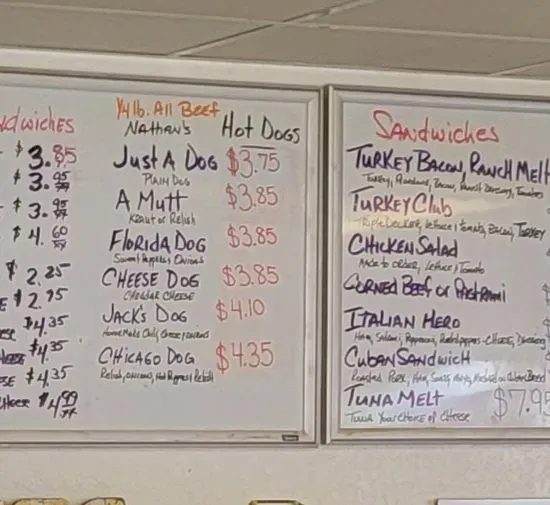 Sandwiches
$3.85
$3.95
$3.95
$4.60
$2.25
$2.75
$4.35
$4.35
$4.35
$4.99
1/4 lb. All Beef
Nathan's Hot Dogs
Just A Dog $3.75
Plain Dog
A Mutt $3.85
Kraut or Relish
Florida Dog $3.85
Sweet Peppers & Onions
Cheese Dog $3.85
Cheddar Cheese
Jack's Dog $4.10
HomeMade Chili, Cheese, onions
Chicago Dog $4.35
Relish, onions, Hot Peppers
Sandwiches
Turkey Bacon, Ranch Melt
Turkey, Bacon, Ranch Dressing, Tomatoes
Turkey Club
Triple Decker, Lettuce, Tomato, Bacon, Turkey
Chicken Salad
Made to order, Lettuce, Tomato
Corned Beef or Pastrami
Italian Hero
Ham, Salami, Pepperoni, Cheese
Cuban Sandwich
Roasted Pork, Ham, Swiss, Cuban Bread
Tuna Melt $7.9
Tuna Your Choice of Cheese